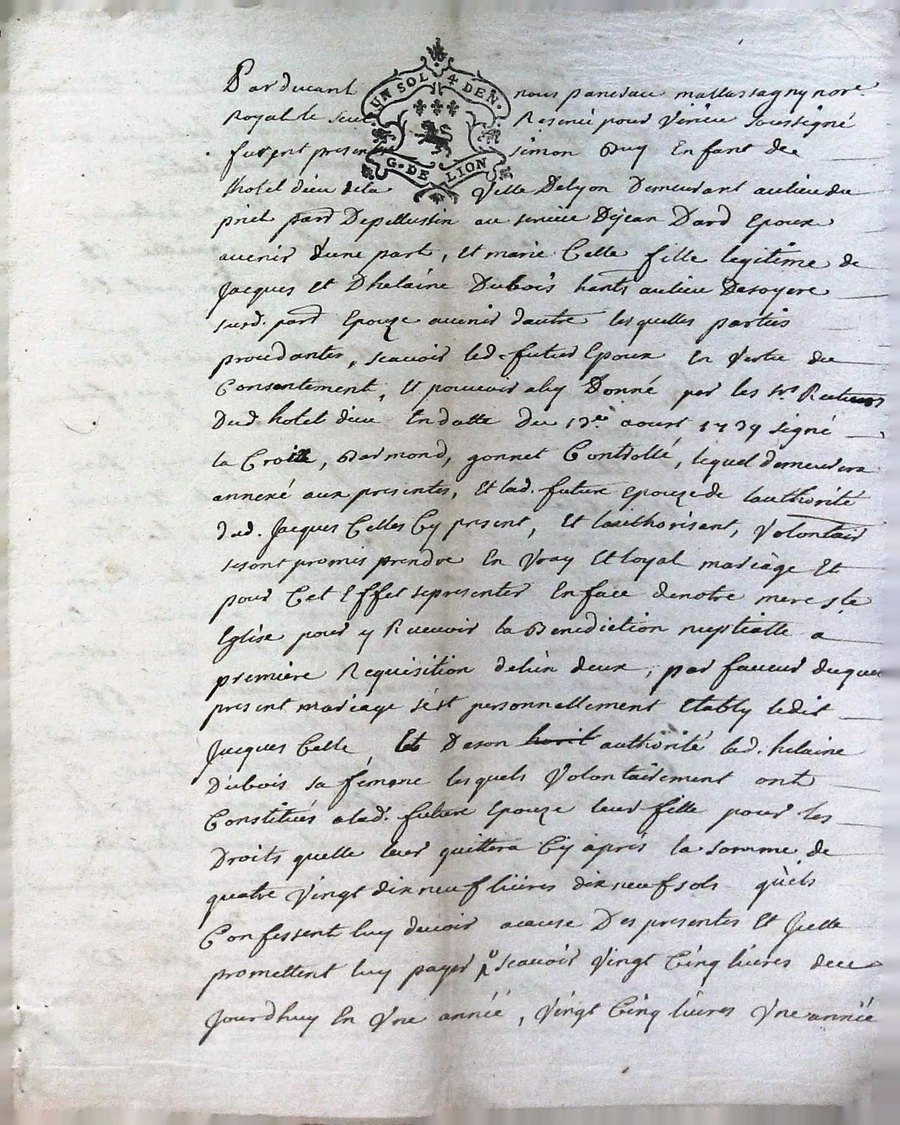 UN SOL 4 DEN.
G. DE LION
Pardevant nous notre
Royal le Reservé pour Virieu soussigné
furent presen simon Duy Enfant de
lhotel dieu dela Ville Delyon Demeurant aulieu du
pard Depellussin au service Dejean Dard Epoux
avenir dune part, Et marie Celle fille legitime de
Jacques Et Dhelaine Dubois hants aulieu Desoyere
surd. pard Epouze avenir dautre lesquelles parties
procedantes, scavoir led. futur Epoux En Vertu du
Consentement, Et pouvoir aluy Donné par les srs Recteurs
Dud hotel dieu En datte Du aoust 1739 signé
la Croix, Darmond, gonnet Controllé, lequel demeurera
annexé aux presentes, Et lad. future Epouze de lauthorité
dud. Jacques Celles Cy present, Et lauthorisant, Volontair
se sont promis prendre En Vray Et loyal mariage Et
pour Cet Effet sepresenter En face denotre mere ste
Eglise pour y Recevoir la Benediction nuptialle a
premiere Requisition delun deux, par faveur duquel
present mariage s'est personnellement Etably ledit
Jacques Celle Et Deson authorité lad. helaine
Dubois sa femme lesquels Volontairement ont
Constitués alad. future Epouze leur fille pour les
Droits quelle leur quittera Cy après la somme de
quatre Vingt dix neuf livres dix neuf sols quils
Confessent luy devoir acause Des presentes Et
promettent luy payer scavoir Vingt Cinq livres dece
Jourdhuy En Vne année, Vingt Cinq livres Vne année